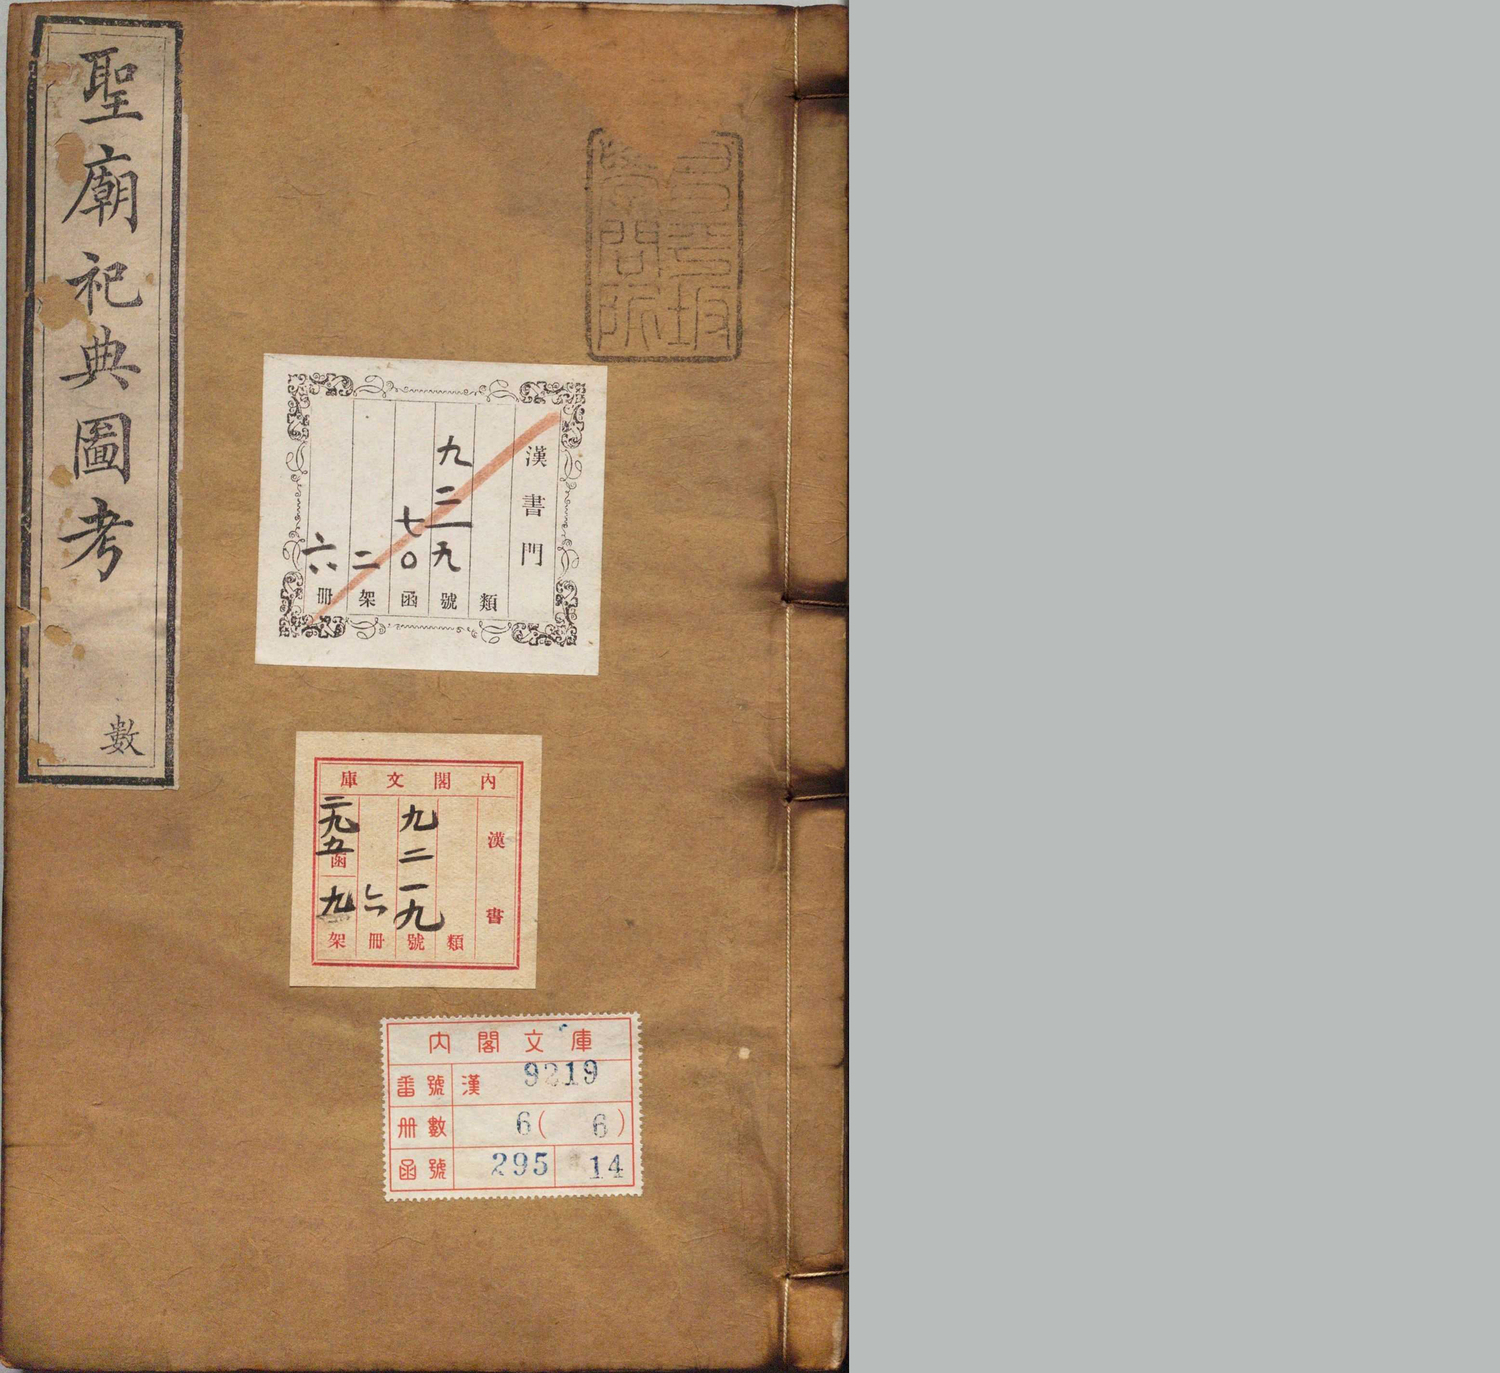 聖廟祀典圖考
數
昌平坂
學問所
漢書門
類
九二一九號
七〇函
二架
六冊
內閣文庫
漢書
類
九二一九號
六冊
二九五函
九架
內閣文庫
番號 漢 9219
冊數 6( 6)
函號 295 14